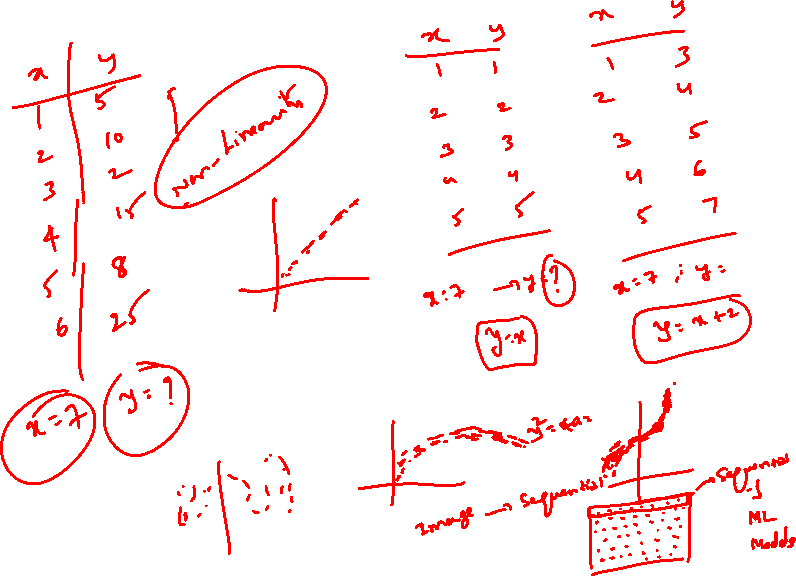 x y
1 5
2 10
3 2
4 15
5 8
6 25
x = 7 y = ?
Non-Linearity
x y
1 1
2 2
3 3
4 4
5 5
x = 7 → y = ?
y = x
x y
1 3
2 4
3 5
4 6
5 7
x = 7 ; y =
y = x + 2
Image → Sequential
Sequential
ML
Models